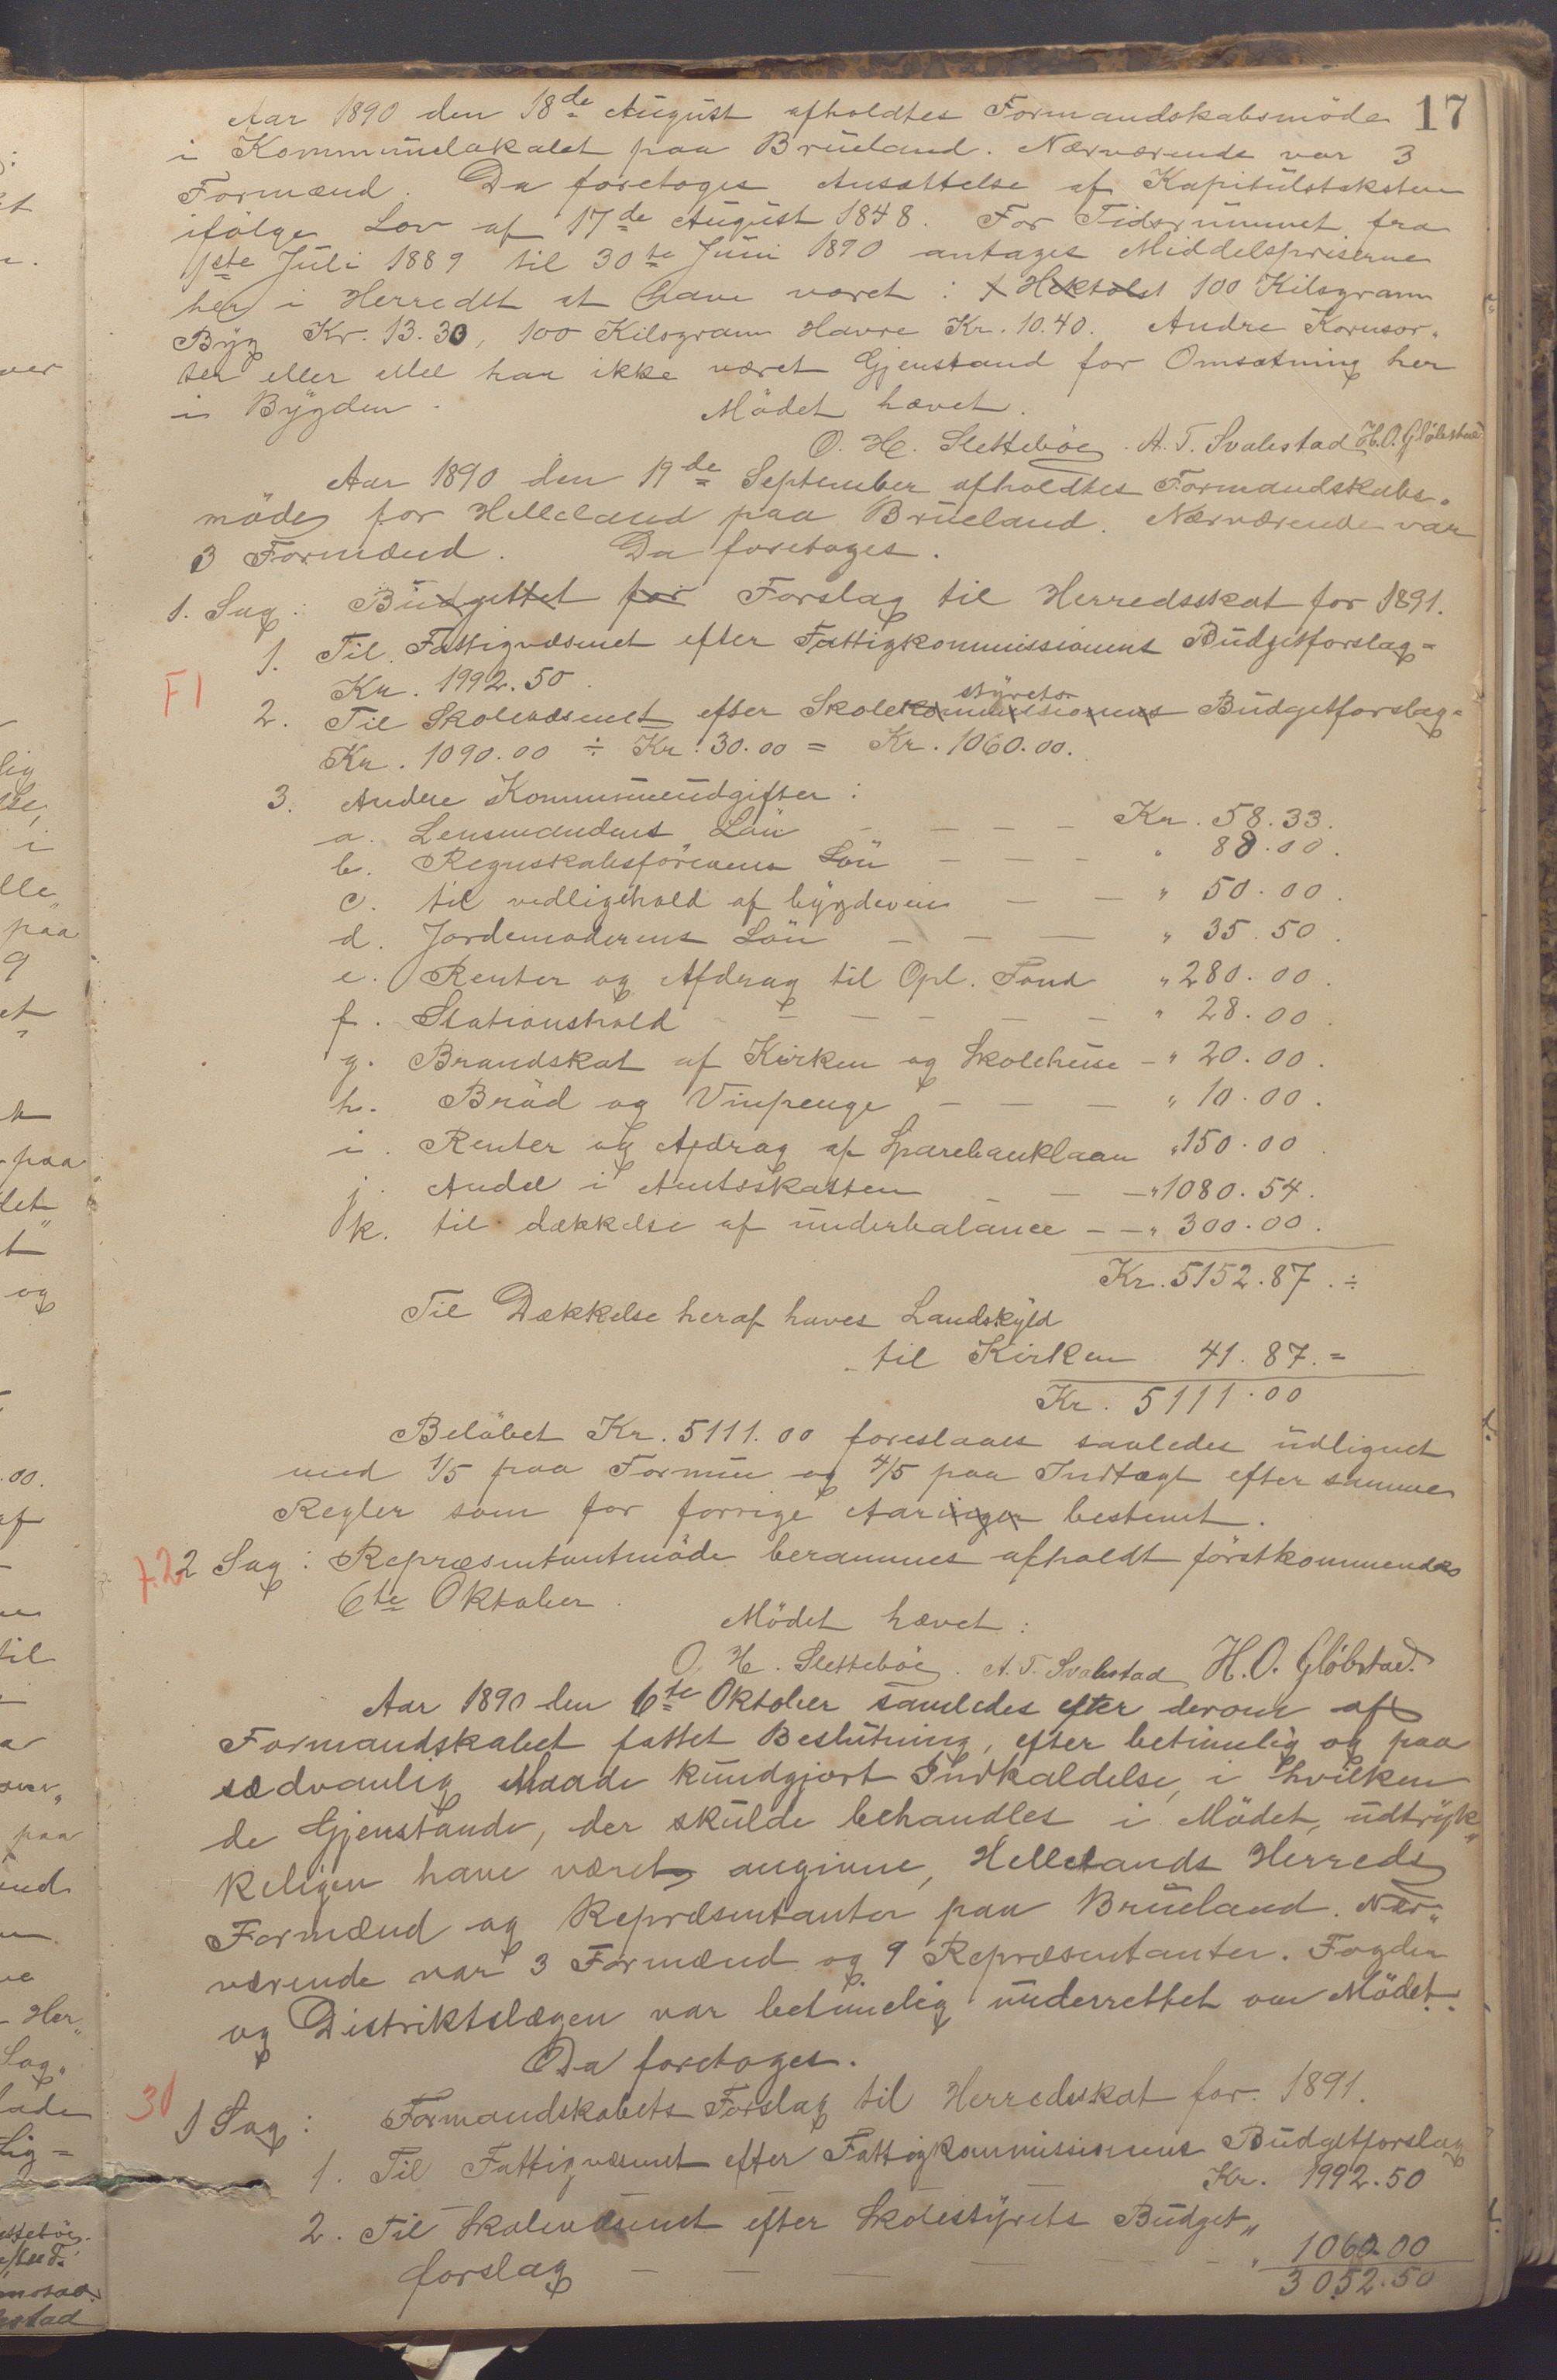 17
Aar 1890 den 18de August afholdtes Formandskabsmöde
i Kommunelokalet paa Brueland. Nærværende var 3
Formænd. Da foretoges Ansættelse af Kapitulstaksten
ifölge Lov af 17de August 1848. For Tidsrummet fra
1ste Juli 1889 til 30te Juni 1890 antages Middelspriserne
her i Herredet at have været: 1 Hektol 100 Kilogram
Byg Kr. 13.30, 100 Kilogram Havre Kr. 10.40. Andre Kornsor-
ter eller Mel har ikke været Gjenstand for Omsætning her
i Bygden. Mödet hævet.
O. H. Sletteböe. A. T. Svalestad H. O. Glöbstad
Aar 1890 den 19de September afholdtes Formandskabs-
möde for Helleland paa Brueland. Nærværende var
3 Formænd. Da foretoges.
1. Sag: Budgettet for Forslag til Herredsskat for 1891.
1. Til Fattigvæsenet efter Fattigkommissionens Budgetforslag =
F1
Kr. 1992.50.
styrets
2. Til Skolevæsenet efter Skolekommissionens Budgetforslag =
Kr. 1090.00 ÷ Kr. 30.00 = Kr. 1060.00.
3. Andre Kommuneudgifter:
a. Lensmandens Lön — — — Kr. 58.33.
b. Regnskabsförerens Lön — — — " 88.00.
c. til vedligehold af bygdeveie — — " 50.00.
d. Jordemoderens Lön — — — " 35.50.
e. Renter og Afdrag til Opl. Fond " 280.00.
f. Stationshold — — — — — " 28.00.
g. Brandskat af Kirken og Skolehuse — " 20.00.
h. Bröd og Vinpenge — — — " 10.00.
i. Renter og Afdrag af Sparebanklaan " 150.00
j. Andel i Amtsskatten — — — " 1080.54.
k. til dækkelse af underbalance — — " 300.00.
Kr. 5152.87. ÷
Til Dækkelse heraf haves Landskyld
til Kirken 41.87. =
Kr. 5111.00
Belöbet Kr. 5111.00 foreslaaes saaledes udlignet
med 1/5 paa Formue og 4/5 paa Indtægt efter samme
Regler som for forrige Aaringer bestemt.
F.2 2 Sag: Repræsentantmöde berammes afholdt förstkommende
6te Oktober.
Mödet hævet:
O. H. Sletteböe. A. T. Svalestad H. O. Glöbstad.
Aar 1890 den 6te Oktober samledes efter derom af
Formandskabet fattet Beslutning, efter betimelig og paa
sædvanlig Maade kundgjort Indkaldelse, i hvilken
de Gjenstande, der skulde behandles i Mödet, udtryk-
keligen have været angivne, Hellelands Herreds
Formænd og Repræsentanter paa Brueland. Nær-
værende var 3 Formænd og 9 Repræsentanter. Fogden
og Distriktslægen var betimelig underrettet om Mödet.
Da foretoges.
31
1 Sag: Formandskabets Forslag til Herredsskat for 1891.
1. Til Fattigvæsenet efter Fattigkommissionens Budgetforslag
Kr. 1992.50
2. Til Skolevæsenet efter Skolestyrets Budget-
forslag — — — — " 1060.00
3052.50